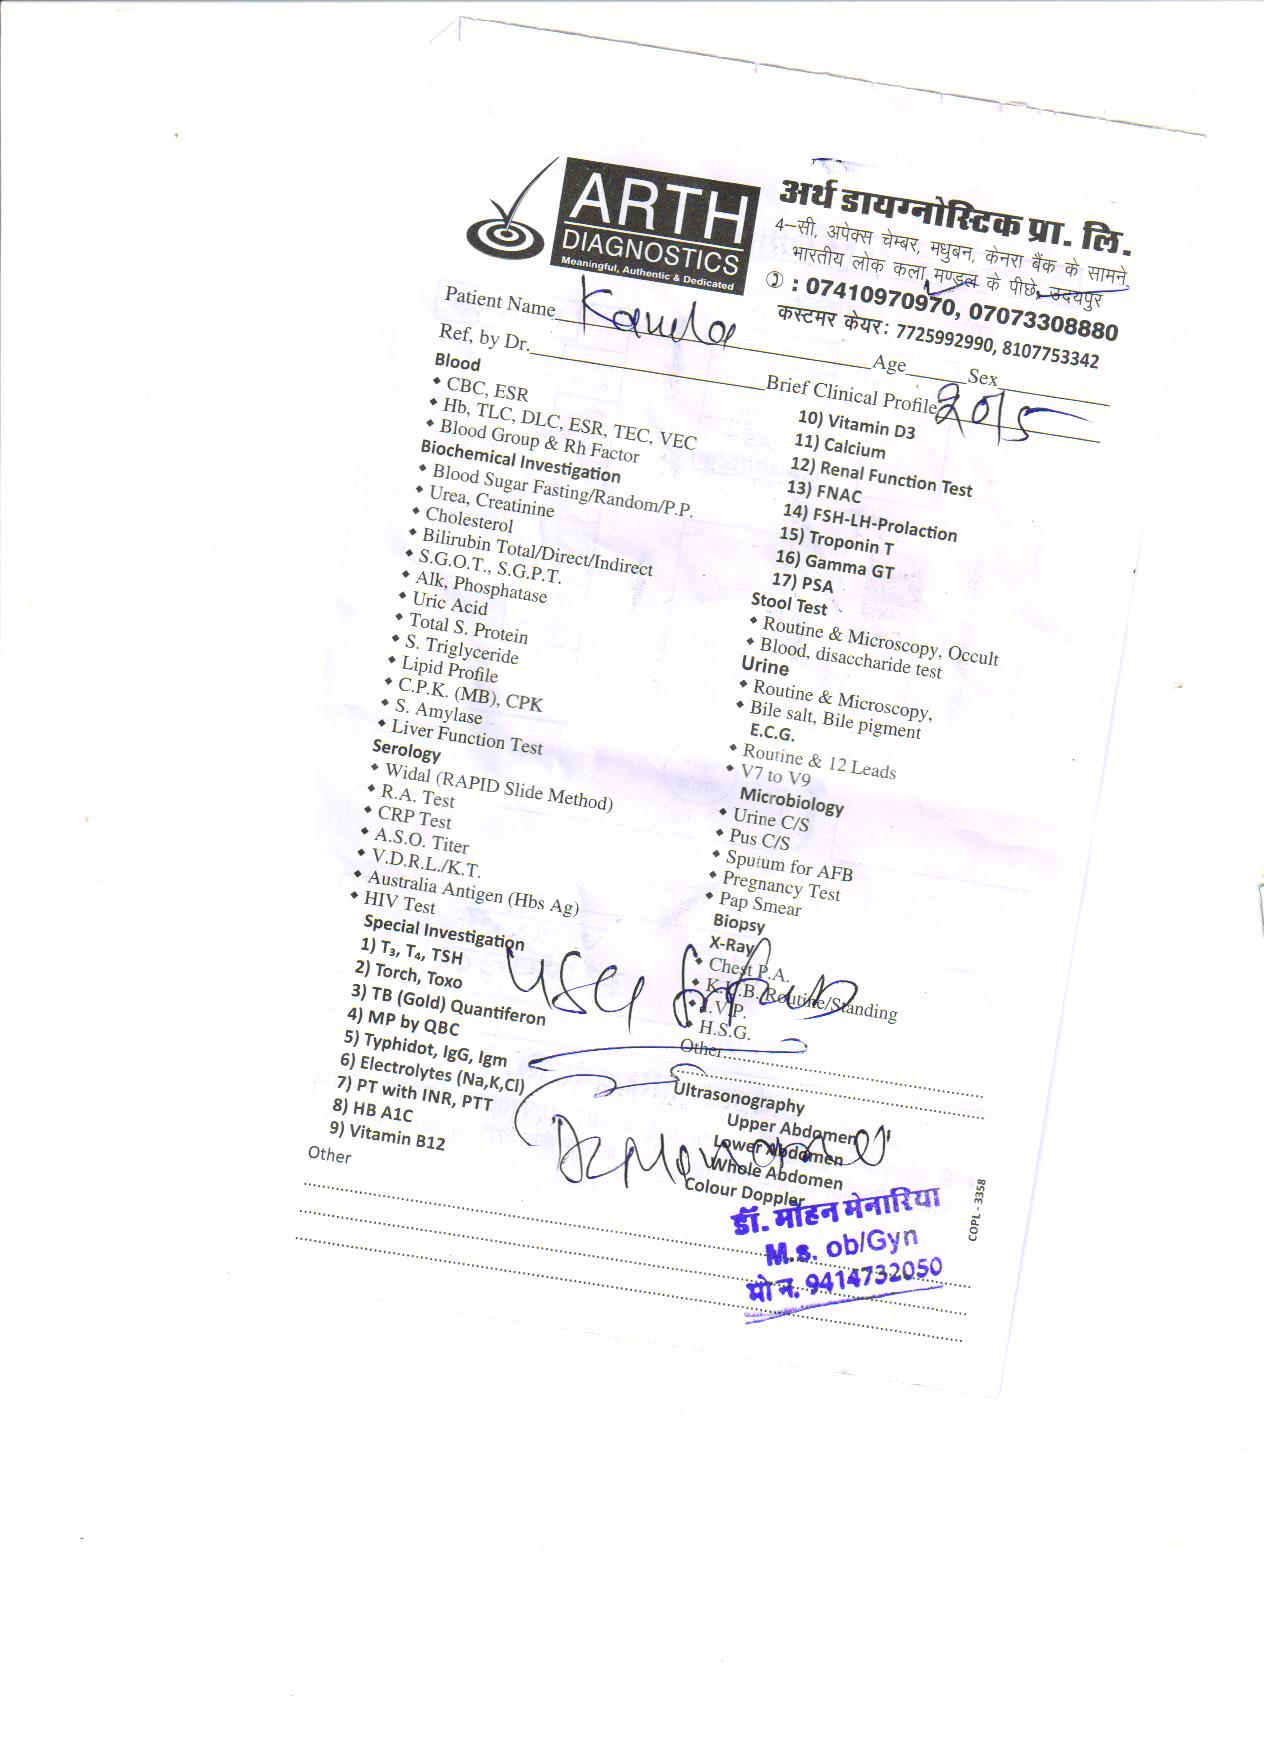 ARTH
DIAGNOSTICS
Meaningful, Authentic & Dedicated
अर्थ डायग्नोस्टिक प्रा. लि.
4–सी, अपेक्स चेम्बर, मधुबन, केनरा बैंक के सामने,
भारतीय लोक कला मण्डल के पीछे, उदयपुर
✆ : 07410970970, 07073308880
कस्टमर केयर: 7725992990, 8107753342
Patient Name Age Sex
Ref, by Dr. Brief Clinical Profile 20/5
Blood
CBC, ESR
Hb, TLC, DLC, ESR, TEC, VEC
Blood Group & Rh Factor
Biochemical Investigation
Blood Sugar Fasting/Random/P.P.
Urea, Creatinine
Cholesterol
Bilirubin Total/Direct/Indirect
S.G.O.T., S.G.P.T.
Alk, Phosphatase
Uric Acid
Total S. Protein
S. Triglyceride
Lipid Profile
C.P.K. (MB), CPK
S. Amylase
Liver Function Test
Serology
Widal (RAPID Slide Method)
R.A. Test
CRP Test
A.S.O. Titer
V.D.R.L./K.T.
Australia Antigen (Hbs Ag)
HIV Test
Special Investigation
1) T₃, T₄, TSH
2) Torch, Toxo
3) TB (Gold) Quantiferon
4) MP by QBC
5) Typhidot, IgG, Igm
6) Electrolytes (Na,K,Cl)
7) PT with INR, PTT
8) HB A1C
9) Vitamin B12
Other
10) Vitamin D3
11) Calcium
12) Renal Function Test
13) FNAC
14) FSH-LH-Prolaction
15) Troponin T
16) Gamma GT
17) PSA
Stool Test
Routine & Microscopy, Occult
Blood, disaccharide test
Urine
Routine & Microscopy,
Bile salt, Bile pigment
E.C.G.
Routine & 12 Leads
V7 to V9
Microbiology
Urine C/S
Pus C/S
Sputum for AFB
Pregnancy Test
Pap Smear
Biopsy
X-Ray
Chest P.A.
K.U.B. Routine/Standing
I.V.P.
H.S.G.
Other
USG
Ultrasonography
Upper Abdomen
Lower Abdomen
Whole Abdomen
Colour Doppler
डॉ. मोहन मेनारिया
M.s. ob/Gyn
मो न. 9414732050
COPL - 3358